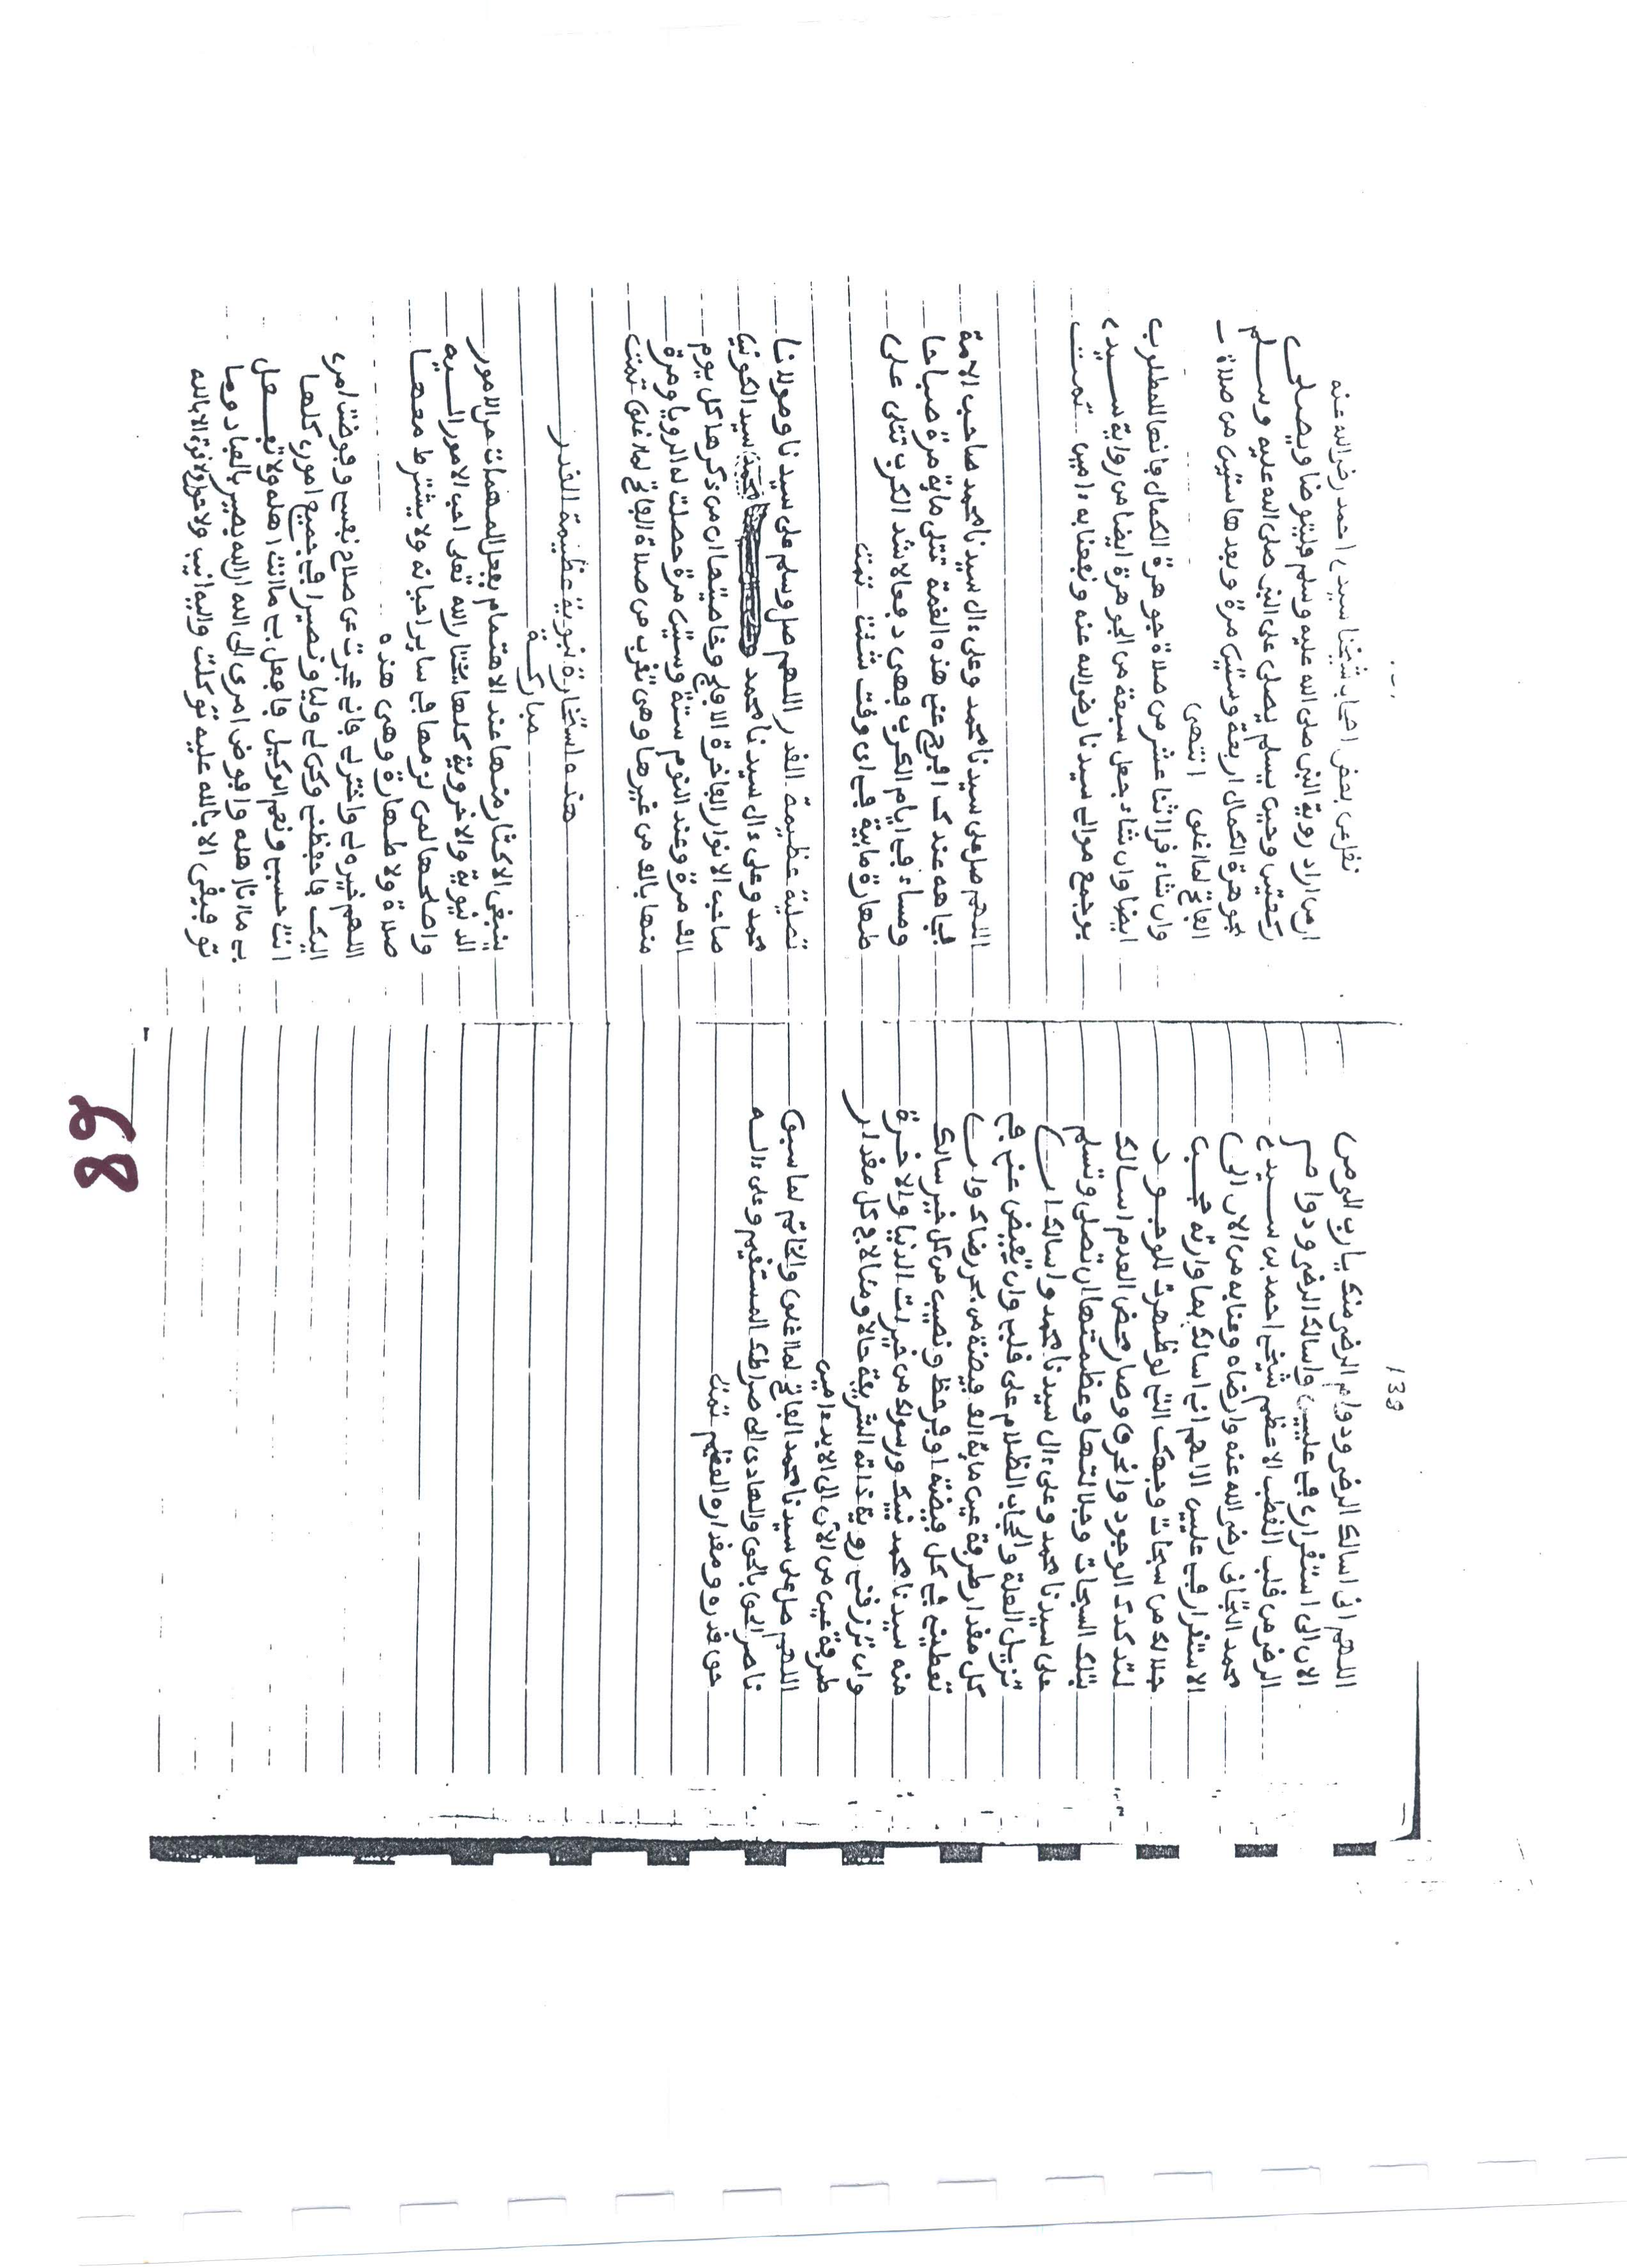 139
اللهم انى اسالك الرضى ودوام الرضى منك يارب الى من
الان الى استقرارى في عليين واسالك الرضى ودوام
الرضى من قلب القطب الاعظم شيخي احمد بن سيدي
محمد التجانى رضى الله عنه وارضاه وعنا به من الان الى
الاستقرار في عليين اللهم اني اسالك بما وارته حجب
جلالك من سبحات وجهك التي لو ظهرت للوجود
لتدكدك الوجود وانحرق وصار محض العدم اسالك
بتلك السبحات وجلالتها وعظمتها ان تصلى وتسلم
على سيدنا محمد وعلى ءال سيدنا محمد واسالك ان
تزيل العلة والحجاب الظلام على قلبي وان تفيض عني في
كل مقدار طرفة عين ماية الف فيضة من بحر رضاك وان
تعطيني في كل فيضة اوفر حظ ونصيب من كل خير سالك
منه سيدنا محمد نبيك ورسولك من خيرات الدنيا والاخرة
وان ترزقني روية ذاته الشريفة حالا ومئالا في كل مقدار
طرفة عين من الان الى الابد ءامين
اللهم صل على سيدنا محمد الفاتح لما اغلق والخاتم لما سبق
ناصر الحق بالحق والهادى الى صراطك المستقيم وعلى ءاله
حق قدره ومقداره العظيم تمت
نقل عن بعض احباب شيخنا سيدي احمد رضى الله عنه
ان من اراد روية النبي صلى الله عليه وسلم فليتوضا ويصلى
ركعتين وحين يسلم يصلى على النبي صلى الله عليه وسلم
بجوهرة الكمال اربعة وستين مرة وبعدها ستين من صلاة
الفاتح لما اغلق انتهى
وان شاء قرا اثنا عشر من صلاة جوهرة الكمال فانها المطلوب
ايضا وان شاء جعل سبعة من الجوهرة ايضا من رواية سيدي
بوجمع موالى سيدنا رضى الله عنه ونفعنا به ءامين تمت
اللهم صل على سيدنا محمد وعلى ءال سيدنا محمد صاحب الامة
بجاهه عندك افرج عني هذه الغمة تتلى ماية مرة صباحا
ومساء في ايام الكرب فهى دفعا لاشد الكرب تتلى على
طهارة ماىية في اى وقت شئت تمت
تصلية عظيمة القدر اللهم صل وسلم على سيدنا ومولانا
محمد وعلى ءال سيدنا محمد سيد الكونين
صاحب الانوار الفاخرة الافلج وخاصيتها ان من ذكرها كل يوم
الف مرة وعند النوم ستة وستين مرة حصلت له الرويا ومرة
منها بالف من غيرها وهى تقرب من صلاة الفاتح لما اغلق تمت
هذه استخارة نبوية عظيمة القدر
مباركة
ينبغى الاكثار منها عند الاهتمام بفعل المهمات من الامور
الدنيوية والاخروية كلها يختار الله تعلى احب الامور اليه
واصلحها لمن لزمها في ساير احيانه ولا يشترط معها
صلاة ولا طهارة وهى هذه
اللهم خير لي واختر لي فاني عجزت عن صلاح نفسي وفوضت امرى
اليك فاحفظني وكن لي وليا ونصيرا في جميع امورى كلها
انت حسبي ونعم الوكيل فافعل بي ما انت اهله ولا تفعل
بي ما انا اهله وافوض امرى الى الله ان الله بصير بالعباد وما
توفيقى الا بالله عليه توكلت واليه انيب ولا حول ولا قوة الا بالله
89